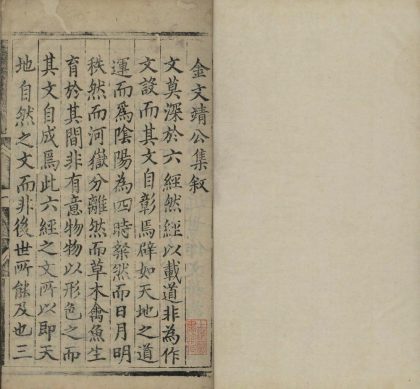 金文靖公集叙
文莫深於六經然經以載道非為作
文設而其文自彰焉辟如天地之道
運而為陰陽為四時粲然而日月明
秩然而河嶽分離然而草木禽魚生
育於其間非有意物物以形色之而
其文自成焉此六經之文所以即天
地自然之文而非後世所能及也三